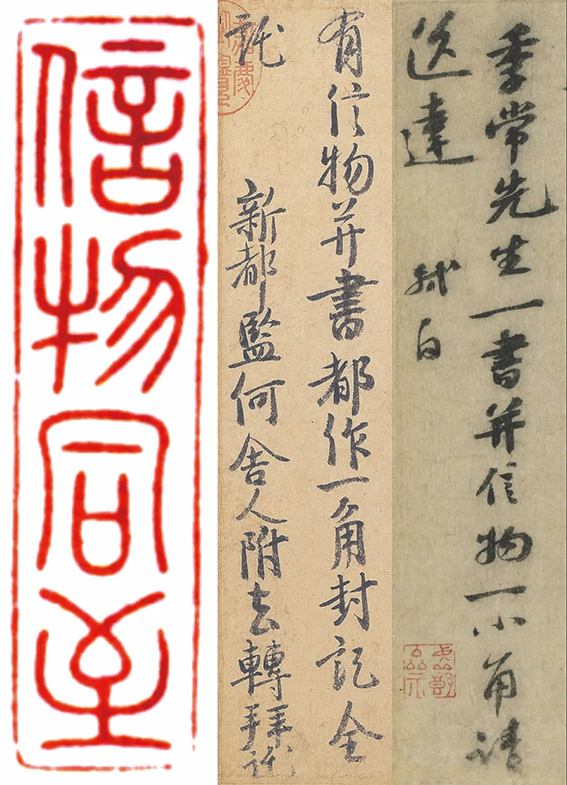 季常先生一書并信物一小角請
送達　軾白
有信物并書都作一角封訖全
託　新都監何舍人附去轉拜託
信物同至